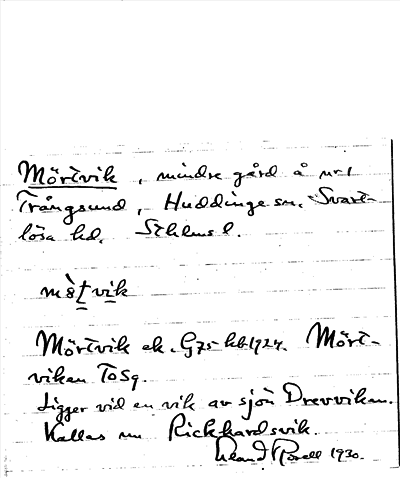 Mörtvik, mindre gård å nr 1
Trångsund, Huddinge sn. Svart-
lösa hd. Sthlms l.
Mörtvik ek. G75 hb 1924. Mört-
viken To5q.
Ligger vid en vik av sjön Drevviken.
Kallas nu Rickhardsvik.
1930.